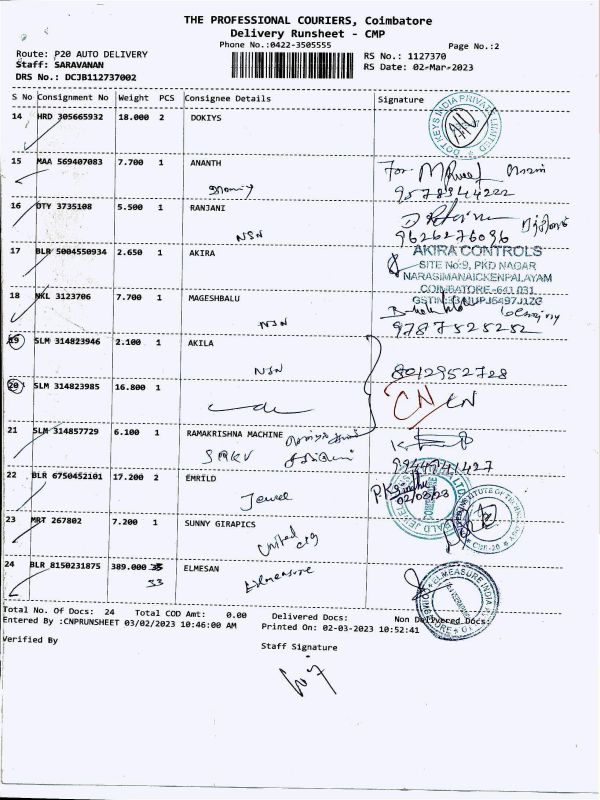 THE PROFESSIONAL COURIERS, Coimbatore
Delivery Runsheet - CMP
Phone No.:0422-3505555
Page No.:2
Route: P20 AUTO DELIVERY
RS No.: 1127370
Staff: SARAVANAN
RS Date: 02-Mar-2023
DRS No.: DCJB112737002
S No Consignment No Weight PCS Consignee Details Signature
14 HRD 305665932 18.000 2 DOKIYS
DOT KEYS INDIA PRIVATE LIMITED
15 MAA 569407083 7.700 1 ANANTH
For
9578944222
16 DTY 3735108 5.500 1 RANJANI
NSN
9626276096
17 BLR 5004550934 2.650 1 AKIRA
AKIRA CONTROLS
SITE No:9, PKD NAGAR
NARASIMANAICKENPALAYAM
COIMBATORE-641 031
18 NKL 3123706 7.700 1 MAGESHBALU
NSN
9787525252
19 SLM 314823946 2.100 1 AKILA
NSN
8012952728
20 SLM 314823985 16.800 1
CN CN
21 SLM 314857729 6.100 1 RAMAKRISHNA MACHINE
SRKV
9944941427
22 BLR 6750452101 17.200 2 EMRILD
Jewel
02/03/23
23 MRT 267802 7.200 1 SUNNY GIRAPICS
United
24 BLR 8150231875 389.000 33 ELMESAN
33
Elmeasure
ELMEASURE INDIA
Total No. Of Docs: 24 Total COD Amt: 0.00 Delivered Docs: Non Delivered Docs:
Entered By :CNPRUNSHEET 03/02/2023 10:46:00 AM Printed On: 02-03-2023 10:52:41
Verified By
Staff Signature